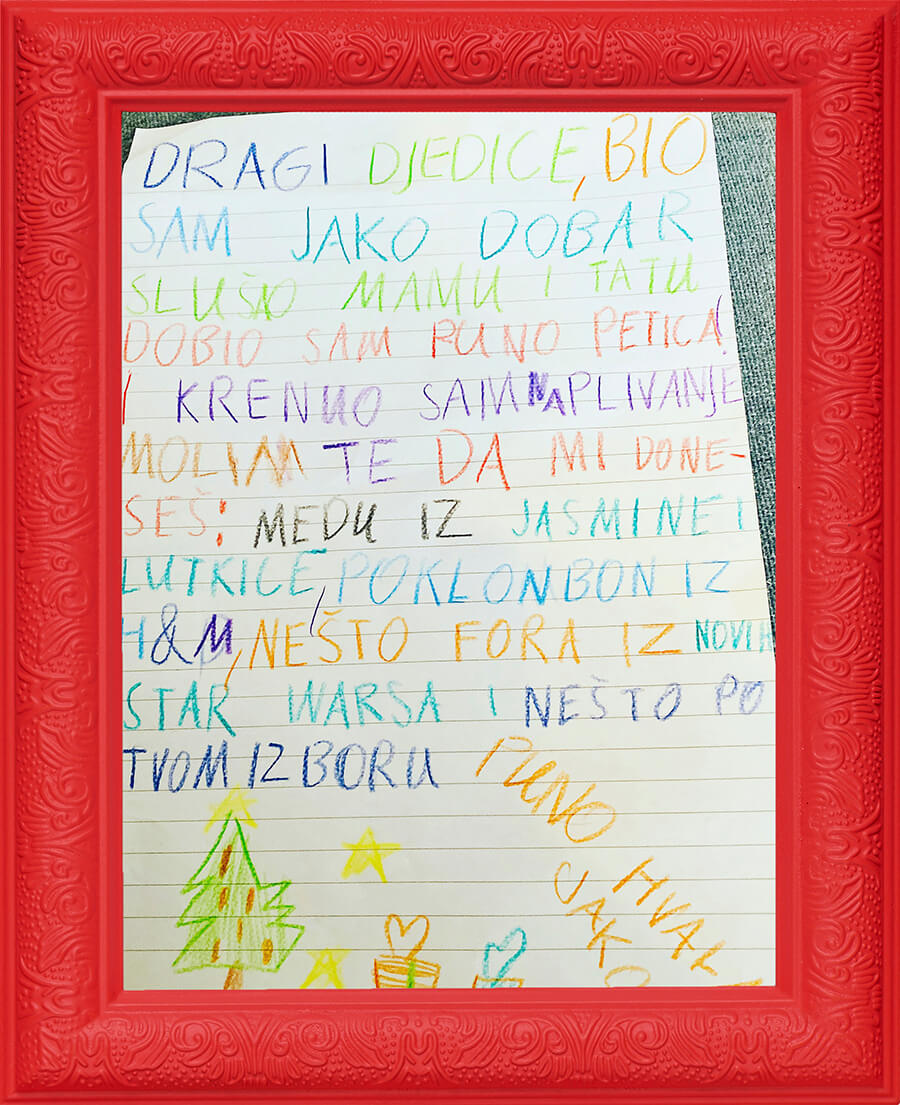 DRAGI DJEDICE, BIO
SAM JAKO DOBAR
SLUŠO MAMU I TATU
DOBIO SAM PUNO PETICA!
I KRENUO SAM NA PLIVANJE
MOLIM TE DA MI DONE-
SEŠ: MEDU IZ JASMINE I
LUTKICE, POKLON BON IZ
H&M, NEŠTO FORA IZ NOVIH
STAR WARSA I NEŠTO PO
TVOM IZBORU
PUNO
HVAL
JAKO